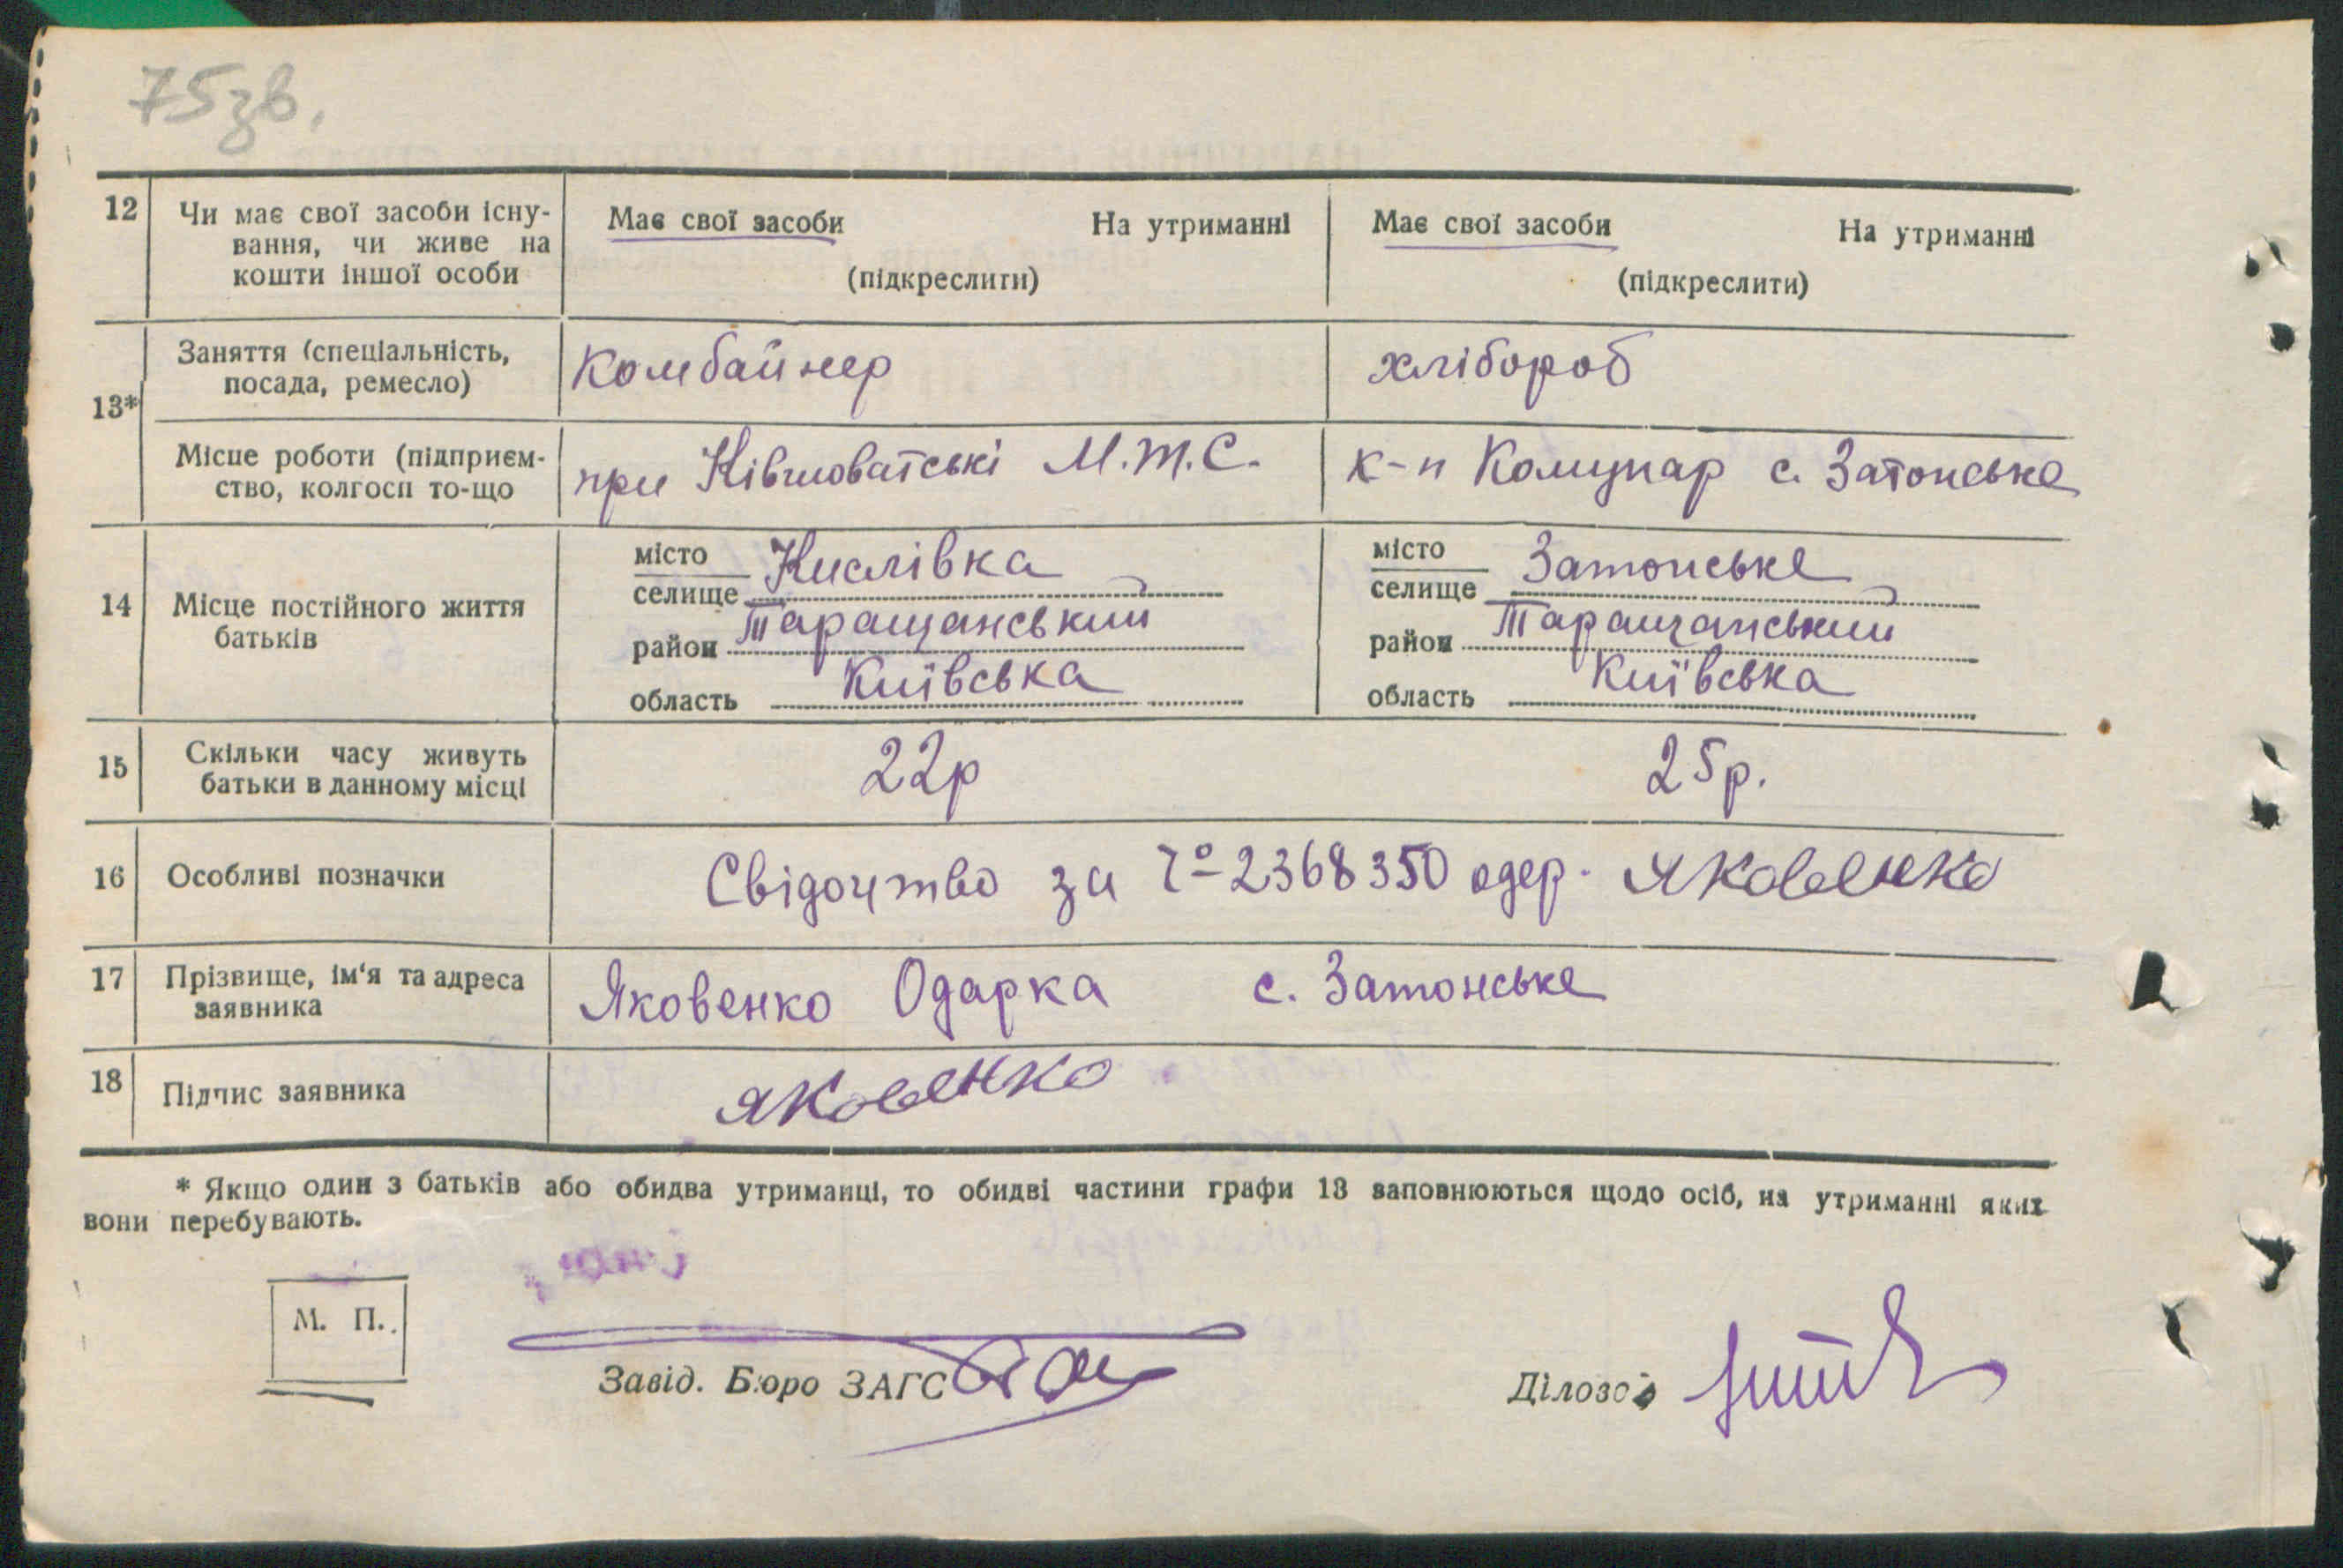 75зв.
12 Чи має свої засоби існу-
вання, чи живе на
кошти іншої особи
Має свої засоби На утриманні
(підкреслити)
Має свої засоби На утриманні
(підкреслити)
13*
Заняття (спеціальність,
посада, ремесло)
Комбайнер
хлібороб
Місце роботи (підприєм-
ство, колгосп то-що
при Ківшоватські М.Т.С.
к-п Комунар с. Затонське
14 Місце постійного життя
батьків
місто
селище Кислівка
район Таращанський
область Київська
місто
селище Затонське
район Таращанський
область Київська
15 Скільки часу живуть
батьки в данному місці
22р
25р.
16 Особливі позначки
Свідоцтво за 2368350 одер. Яковенко
17 Прізвище, ім'я та адреса
заявника
Яковенко Одарка с. Затонське
18 Підпис заявника
Яковенко
* Якщо один з батьків або обидва утриманці, то обидві частини графи 13 заповнюються щодо осіб, на утриманні яких
вони перебувають.
М. П.
Завід. Бюро ЗАГС
Діловод